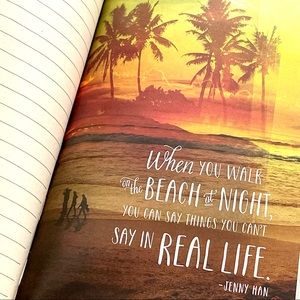 When YOU WALK
on the BEACH at NIGHT,
YOU CAN SAY THINGS YOU CAN'T
SAY IN REAL LIFE.
-JENNY HAN